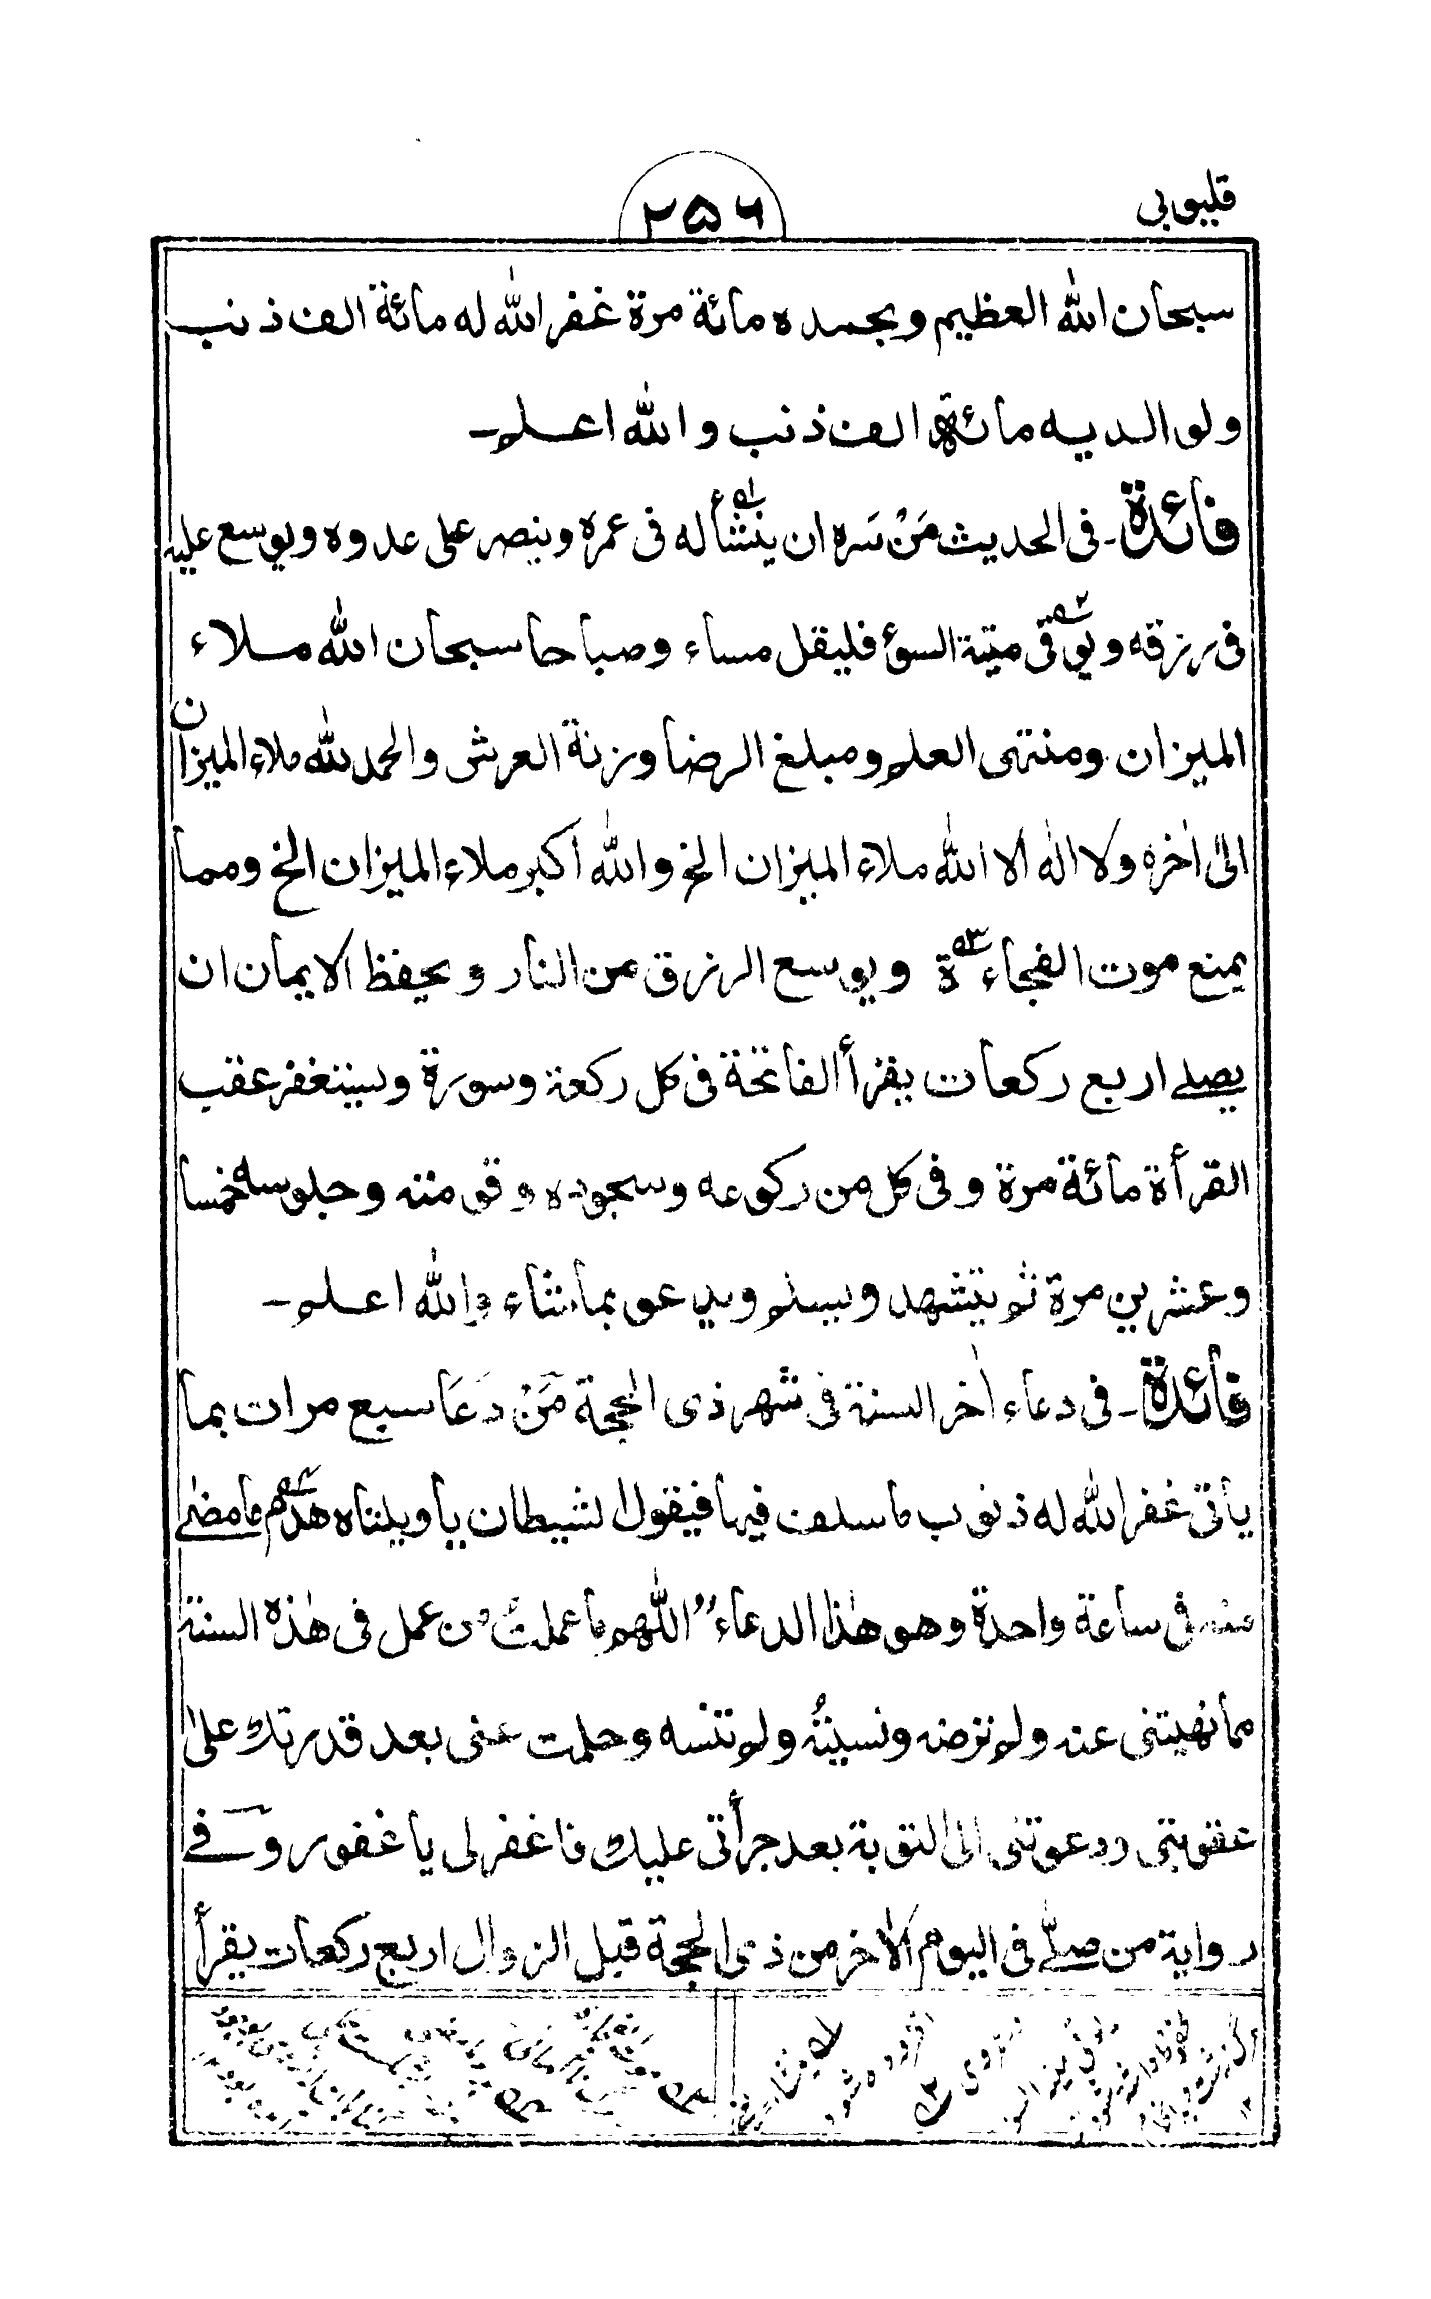 قليوبي
۲۵۶
سبحان الله العظيم وبحمده مائة مرة غفر الله له مائة الف ذنب
ولوالديه مائة الف ذنب والله اعلم۔
فائدة۔ فى الحديث مَنْ سَره ان ينشأ له فى عمره وينصر على عدوه ويوسع عليه
فى رزقه ويوقى ميتة السوٴ فليقل مساء وصباحا سبحان الله ملاء
الميزان ومنتهى العلم ومبلغ الرضا وزنة العرش والحمد لله ملاء الميزان
الىٰ اٰخره ولا اله الا الله ملاء الميزان الخ والله اكبر ملاء الميزان الخ ومما
يمنع موت الفجاءة ويوسع الرزق من النار ويحفظ الايمان ان
يصلے اربع ركعات يقرأ الفاتحة فى كل ركعة وسورة ويستغفر عقب
القرأة مائة مرة وفى كل من ركوعه وسجوده وقومته وجلوسه خمسا
وعشرين مرة ثم يتشهد ويسلم ويدعو بما شاء والله اعلم۔
فائدة۔ فى دعاء اٰخر السنة فى شهر ذى الحجة مَنْ دَعَا سبع مرات بما
يأتى غفر الله له ذنوب ما سلف فيها فيقول الشيطان ياويلتاه هدم ما مضىٰ
منه فى ساعة واحدة وهو هٰذا الدعاء” اللّٰهم ما عملتُ من عمل فى هٰذه السنة
مما نهيتنى عنه ولم ترضه ونسيتُه ولم تنسه وحلمت عنى بعد قدرتك علىٰ
عقوبتى ودعوتنى الى التوبة بعد جرأتى عليك فاغفرلى يا غفور وفے
رواية من صلّے فى اليوم الاٰخر من ذى الحجة قبل الزوال اربع ركعات يقرأ